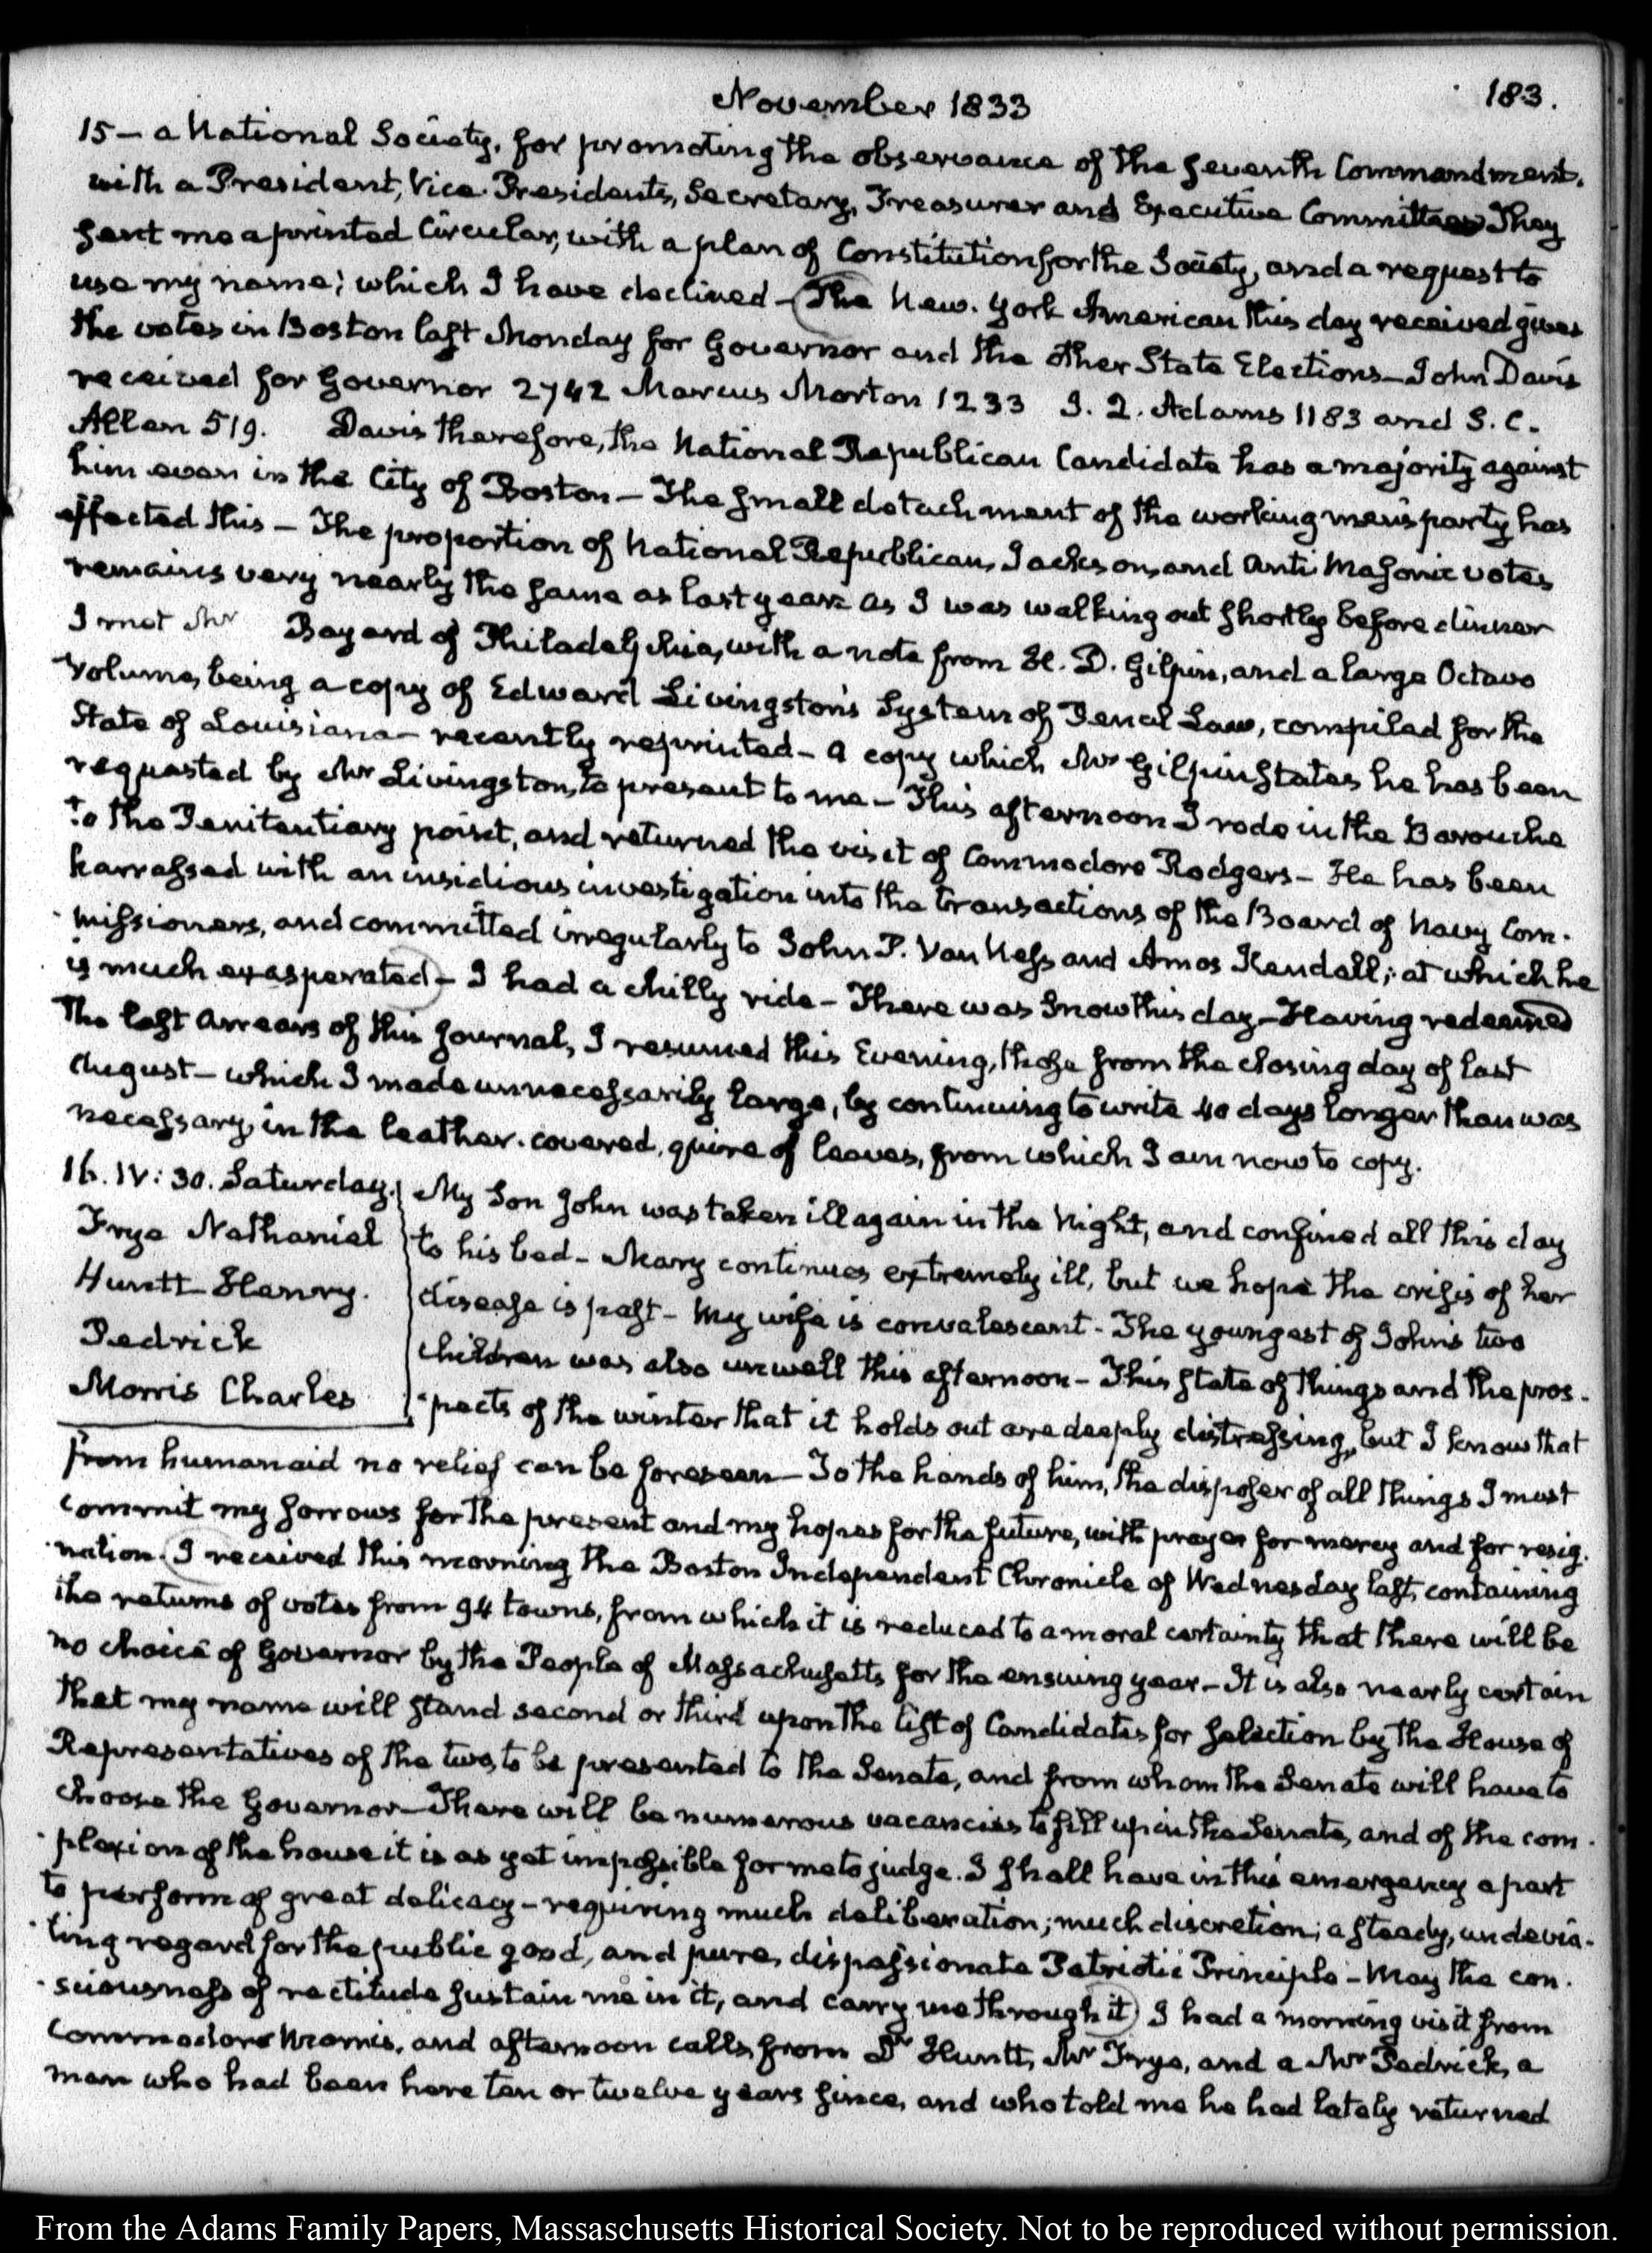 November 1833
183.
15 — a National Society, for promoting the observance of the seventh Commandment.
with a President, Vice-Presidents, Secretary, Treasurer and Executive Committee They
sent me a printed Circular, with a plan of Constitution for the Society, and a request to
use my name; which I have declined — The New-York American this day received gives
the votes in Boston last Monday for Governor and the other State Elections — John Davis
received for Governor 2742 Marcus Morton 1233 J. Q. Adams 1183 and S. C.
Allen 519. Davis therefore, the National Republican Candidate has a majority against
him even in the City of Boston — The small detachment of the working men's party has
effected this — The proportion of National Republican, Jackson, and Anti-Masonic votes
remains very nearly the same as last year. As I was walking out shortly before dinner
I met Mr Bayard of Philadelphia, with a note from H. D. Gilpin, and a large Octavo
volume, being a copy of Edward Livingston's System of Penal Law, compiled for the
State of Louisiana — recently reprinted — A copy which Mr Gilpin states he has been
requested by Mr Livingston, to present to me — This afternoon I rode in the Barouche
to the Penitentiary point, and returned the visit of Commodore Rodgers — He has been
harrassed with an insidious investigation into the transactions of the Board of Navy Com-
missioners, and committed irregularly to John P. Van Ness and Amos Kendall; at which he
is much exasperated — I had a chilly ride — There was Snow this day — Having redeemed
the last arrears of this journal, I resumed this Evening, those from the closing day of last
August — which I made unnecessarily large, by continuing to write 40 days longer than was
necessary, in the leather-covered, quire of leaves, from which I am now to copy.
16. IV: 30. Saturday.
Frye Nathaniel
Huntt Henry.
Pedrick
Morris Charles
My Son John was taken ill again in the Night, and confined all this day
to his bed — Mary continues extremely ill, but we hope the crisis of her
disease is past — My wife is convalescent — The youngest of John's two
children was also unwell this afternoon — This state of things and the pros-
pects of the winter that it holds out are deeply distressing, but I know that
from human aid no relief can be foreseen — To the hands of him, the disposer of all things I must
commit my sorrows for the present and my hopes for the future, with prayer for mercy and for resig-
nation. I received this morning the Boston Independent Chronicle of Wednesday last, containing
the returns of votes from 94 towns, from which it is reduced to a moral certainty that there will be
no choice of Governor by the People of Massachusetts for the ensuing year — It is also nearly certain
that my name will stand second or third upon the list of Candidates for selection by the House of
Representatives of the two, to be presented to the Senate, and from whom the Senate will have to
choose the Governor — There will be numerous vacancies to fill up in the Senate, and of the com-
plexion of the house it is as yet impossible for me to judge. I shall have in this emergency a part
to perform of great delicacy — requiring much deliberation; much discretion; a steady, undevia-
ting regard for the public good, and pure, dispassionate Patriotic Principle — May the con-
sciousness of rectitude sustain me in it, and carry me through it) I had a morning visit from
Commodore Morris, and afternoon calls from Dr Huntt, Mr Frye, and a Mr Pedrick, a
man who had been here ten or twelve years since, and who told me he had lately returned
From the Adams Family Papers, Massaschusetts Historical Society. Not to be reproduced without permission.